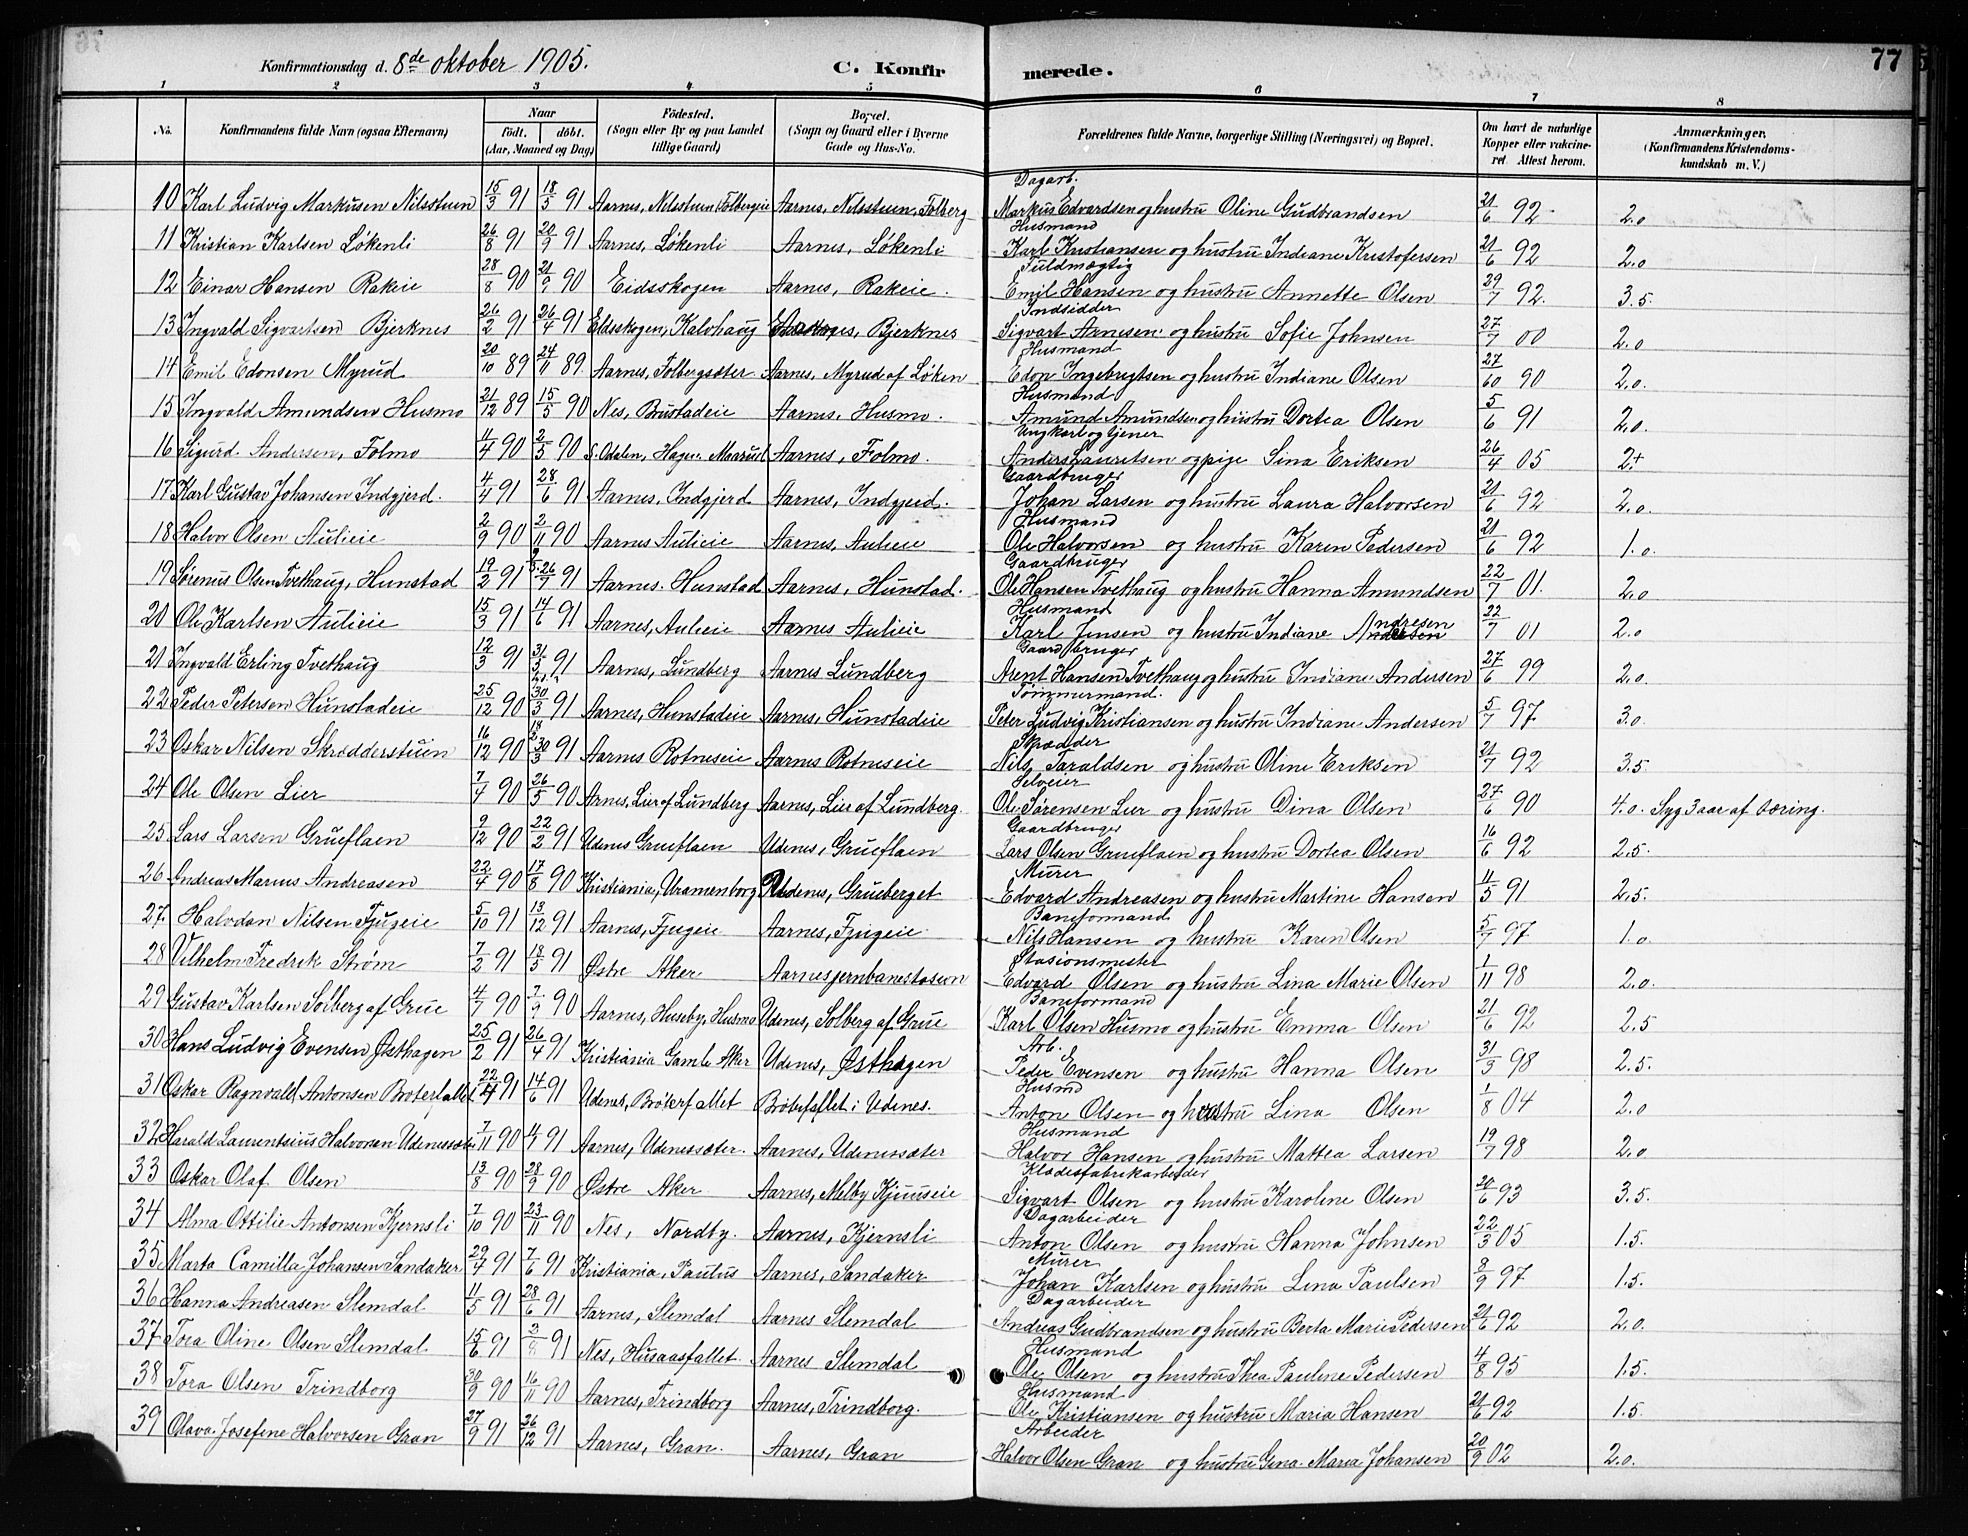 77
Konfirmationsdag d. 8de oktober 1905. C. Konfir merede.
1 2 3 4 5 6 7 8
No. Konfirmandens fulde Navn (ogsaa Efternavn) Naar født. døbt. (Aar, Maaned og Dag) Födested. (Sogn eller By og paa Landet tillige Gaard) Bopæl. (Sogn og Gaard eller i Byerne Gade og Hus-No. Forældrenes fulde Navne, borgerlige Stilling (Næringsvei) og Bopæl. Om havt de naturlige Kopper eller vakcineret. Attest herom. Anmærkninger. (Konfirmandens Kristendomskundskab m. V.)
10 Karl Ludvig Markusen Nilsstuen 15/3 91 18/5 91 Aarnes, Nilsstuen, Folbergeie Aarnes, Nilsstuen, Folberg Dagarb. Markus Edvardsen og hustru Oline Gudbrandsen 21/6 92 2.0
11 Kristian Karlsen Løkenli 26/8 91 20/9 91 Aarnes, Løkenli Aarnes, Løkenli Husmand Karl Kristiansen og hustru Indiane Kristofersen 21/6 92 2.0
12 Einar Hansen Rakeie 28/8 90 21/9 90 Eidsskogen Aarnes, Rakeie. Fuldmægtig Emil Hansen og hustru Annette Olsen 29/7 92. 3.5.
13 Ingvald Sigvartsen Bjerknes 26/2 91 26/4 91 Eidsskogen, Kalvhaug Aarnes, Bjerknes Indsidder Sigvart Arnesen og hustru Sofie Johnsen 27/7 00 2.0
14 Emil Edonsen Myrud 20/10 89 24/11 89. Aarnes, Folbergsæter Aarnes, Myrud af Løken Husmand Edon Ingebrigtsen og hustru Indiane Olsen 27/60 90 2.0.
15 Ingvald Amundsen Husmo 21/12 89 15/5 90 Nes, Bustadeie Aarnes. Husmo. Husmand Amund Amundsen og hustru Dortea Olsen 5/6 91 2.0.
16 Sigurd. Andersen, Folmo 11/4 90 2/5 90 S. Odalen, Hagen Maarud Aarnes, Folmo. Ungkarl og tjener Anders Lauritsen og pige Sina Eriksen 26/4 05 2+
17 Karl Gustav Johansen Indgjerd. 4/4 91 28/6 91 Aarnes. Indgjerd Aarnes, Indgjerd. Gaardbruger Johan Larsen og hustru Laura Halvorsen 21/6 92 2.0.
18 Halvor Olsen Aulieie 2/9 90 2/11 90 Aarnes Aulieie Aarnes, Aulieie Husmand Ole Halvorsen og hustru Karen Pedersen 21/6 92 1.0.
19 Sørenus Olsen Tvethaug, Hunstad 19/2 91 26/7 91 Aarnes. Hunstad Aarnes, Hunstad. Gaardbruger Ole Hansen Tvethaug og hustru Hanna Amundsen 22/7 01. 2.0
20 Ole Karlsen Aulieie 15/3 91 14/6 91 Aarnes, Aulieie Aarnes Aulieie Husmand Karl Jensen og hustru Indiane Andresen 22/7 01 2.0
21 Ingvald Erling Tvethaug 12/3 91 31/5 91 Aarnes, Lundberg Aarnes Lundberg Gaardbruger Arent Hansen Tvethaug og hustru Indiane Andersen 27/6 99 2.0.
22 Peder Petersen Hunstadeie 25/12 90 30/3 91 Aarnes, Hunstadeie Aarnes, Hunstadeie Tømmermand. Peter Ludvig Kristiansen og hustru Indiane Andersen 5/7 97. 3.0.
23 Oskar Nilsen Skrædderstuen 16/12 90 30/3 91 Aarnes Rotneseie Aarnes Rotneseie Skrædder Nils Taraldsen og hustru Oline Eriksen 21/7 92 3.5.
24 Ole Olsen Lier 7/4 90 26/5 90 Arnes, Lier af Lundberg Aarnes, Lier af Lundberg. Selveier Ole Sørensen Lier og hustru Dina Olsen 27/6 90 4.0. Syg 3 aar af tæring.
25 Lars Larsen Grueflaen 9/12 90 22/2 91 Udenes Grueflaen Udenes, Grueflaen Gaardbruger Lars Olsen Grueflaen og hustru Dortea Olsen 16/6 92 2.5.
26 Andreas Marius Andreasen 22/4 90 17/8 90 Kristiania, Uranienborg Udenes, Grueberget Murer Edvard Andreasen og hustru Martine Hansen 11/5 91 2.5.
27. Halvdan Nilsen Fjugeie 5/10 91 13/12 91 Aarnes, Fjugeie Aarnes, Fjugeie. Baneformand Nils Hansen og hustru Karen Olsen 5/7 97. 1.0.
28 Vilhelm Fredrik Strøm 7/2 91 18/5 91 Østre Aker Aarnes jernbanestasion Stasionsmester Edvard Olsen og hustru Lina Marie Olsen 1/11 98 2.0.
29 Gustav Karlsen Solberg af Grue 4/7 90 7/9 90 Aarnes, Huseby, Husmo Udenes, Solberg af Grue Baneformand Karl Olsen Husmo og hustru Emma Olsen 21/6 92 2.5
30 Hans Ludvig Evensen Østhagen 25/2 91 26/4 91 Kristiania Gamle Aker Udenes, Østhagen Arb. Peder Evensen og hustru Hanna Olsen 31/3 98 2.5.
31 Oskar Ragnvald Antonsen Broterfallet 22/4 91 14/6 91 Udenes, Bröterfallet Bröterfallet i Udenes. Husmd Anton Olsen og hustru Lina Olsen 1/8 04 2.0
32 Harald Laurentsius Halvorsen Udenessæter 7/11 90 4/1 91 Aarnes, Udenessæter. Aarnes, Udenessæter Husmand Halvor Hansen og hustru Mattea Larsen 19/7 98 2.0
33 Oskar Olaf Olsen 13/8 90 28/9 90 Østre Aker Aarnes, Melby Kjuuseie Klædesfabrikarbeider Sigvart Olsen og hustru Karoline Olsen 20/6 93 3.5.
34 Alma Ottilie Antonsen Kjernsli 7/10 90 23/11 90 Nes, Nordby. Aarnes, Kjernsli Dagarbeider Anton Olsen og hustru Hanna Johnsen 22/3 05 1.5.
35 Marta Camilla Johansen Sandaker 29/4 91 7/6 91 Kristiania, Paulus Aarnes, Sandaker Murer Johan Karlsen og hustru Lina Paulsen 8/9 97 1.5.
36 Hanna Andreasen Slemdal 11/5 91 28/6 91 Aarnes, Slemdal Aarnes Slemdal Dagarbeider Andreas Gudbrandsen og hustru Berta Marie Pedersen 21/6 92 2.0.
37 Tora Oline Olsen Slemdal 15/6 91 2/8 91 Nes, Husaasfallet. Aarnes Slemdal Husmand Ole Olsen og hustru Thea Pauline Pedersen 4/8 95 1.5.
38 Tora Olsen Trindborg 30/9 90 16/11 90 Aarnes, Trindborg Aarnes, Trindborg. Husmand Ole Kristiansen og hustru Maria Hansen 21/6 92 1.5.
39 Olava Josefine Halvorsen Gran 27/9 91 26/12 91 Aarnes, Gran. Aarnes, Gran Arbeider Halvor Olsen Gran og hustru Gina Maria Johansen 20/9 02 2.0.